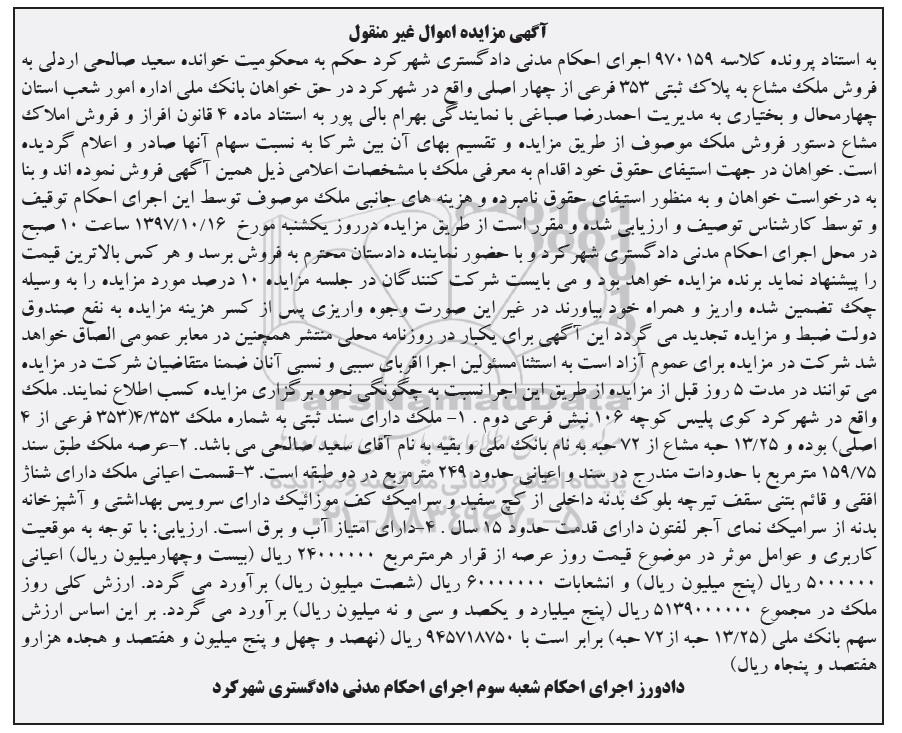 آگهی مزایده اموال غیر منقول
به استناد پرونده کلاسه ۹۷۰۱۵۹ اجرای احکام مدنی دادگستری شهرکرد حکم به محکومیت خوانده سعید صالحی اردلی به
فروش ملک مشاع به پلاک ثبتی ۳۵۳ فرعی از چهار اصلی واقع در شهرکرد در حق خواهان بانک ملی اداره امور شعب استان
چهارمحال و بختیاری به مدیریت احمدرضا صباغی با نمایندگی بهرام بالی پور به استناد ماده ۴ قانون افراز و فروش املاک
مشاع دستور فروش ملک موصوف از طریق مزایده و تقسیم بهای آن بین شرکا به نسبت سهام آنها صادر و اعلام گردیده
است. خواهان در جهت استیفای حقوق خود اقدام به معرفی ملک با مشخصات اعلامی ذیل همین آگهی فروش نموده اند و بنا
به درخواست خواهان و به منظور استیفای حقوق نامبرده و هزینه های جانبی ملک موصوف توسط این اجرای احکام توقیف
و توسط کارشناس توصیف و ارزیابی شده و مقرر است از طریق مزایده درروز یکشنبه مورخ ۱۳۹۷/۱۰/۱۶ ساعت ۱۰ صبح
در محل اجرای احکام مدنی دادگستری شهرکرد و با حضور نماینده دادستان محترم به فروش برسد و هر کس بالاترین قیمت
را پیشنهاد نماید برنده مزایده خواهد بود و می بایست شرکت کنندگان در جلسه مزایده ۱۰ درصد مورد مزایده را به وسیله
چک تضمین شده واریز و همراه خود بیاورند در غیر این صورت وجوه واریزی پس از کسر هزینه مزایده به نفع صندوق
دولت ضبط و مزایده تجدید می گردد این آگهی برای یکبار در روزنامه محلی منتشر همچنین در معابر عمومی الصاق خواهد
شد شرکت در مزایده برای عموم آزاد است به استثنا مسئولین اجرا اقربای سببی و نسبی آنان ضمنا متقاضیان شرکت در مزایده
می توانند در مدت ۵ روز قبل از مزایده از طریق این اجرا نسبت به چگونگی نحوه برگزاری مزایده کسب اطلاع نمایند. ملک
واقع در شهرکرد کوی پلیس کوچه ۱۰۶ نبش فرعی دوم . ۱- ملک دارای سند ثبتی به شماره ملک ۴/۳۵۳(۳۵۳ فرعی از ۴
اصلی) بوده و ۱۳/۲۵ حبه مشاع از ۷۲ حبه به نام بانک ملی و بقیه به نام آقای سعید صالحی می باشد. ۲-عرصه ملک طبق سند
۱۵۹/۷۵ مترمربع با حدودات مندرج در سند و اعیانی حدود ۲۴۹ مترمربع در دو طبقه است. ۳-قسمت اعیانی ملک دارای شناژ
افقی و قائم بتنی سقف تیرچه بلوک بدنه داخلی از گچ سفید و سرامیک کف موزائیک دارای سرویس بهداشتی و آشپزخانه
بدنه از سرامیک نمای آجر لفتون دارای قدمت حدود ۱۵ سال . ۴-دارای امتیاز آب و برق است. ارزیابی: با توجه به موقعیت
کاربری و عوامل موثر در موضوع قیمت روز عرصه از قرار هرمترمربع ۲۴۰۰۰۰۰۰ ریال (بیست وچهارمیلیون ریال) اعیانی
۵۰۰۰۰۰۰ ریال (پنج میلیون ریال) و انشعابات ۶۰۰۰۰۰۰۰ ریال (شصت میلیون ریال) برآورد می گردد. ارزش کلی روز
ملک در مجموع ۵۱۳۹۰۰۰۰۰۰ ریال (پنج میلیارد و یکصد و سی و نه میلیون ریال) برآورد می گردد. بر این اساس ارزش
سهم بانک ملی (۱۳/۲۵ حبه از ۷۲ حبه) برابر است با ۹۴۵۷۱۸۷۵۰ ریال (نهصد و چهل و پنج میلیون و هفتصد و هجده هزارو
هفتصد و پنجاه ریال)
دادورز اجرای احکام شعبه سوم اجرای احکام مدنی دادگستری شهرکرد
ParsNamadData
پایگاه اطلاع رسانی مناقصه و مزایده
۰۲۱-۸۸۳۴۹۶۷۰-۵